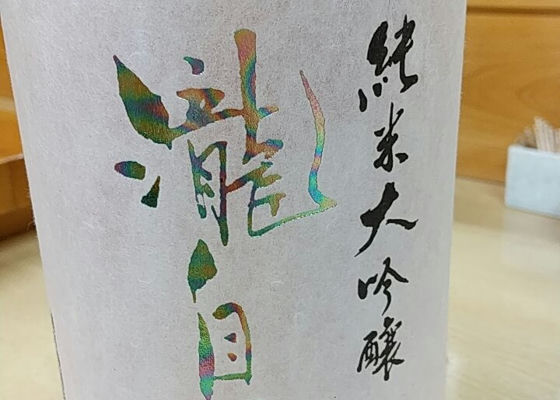 純米大吟醸
瀧自